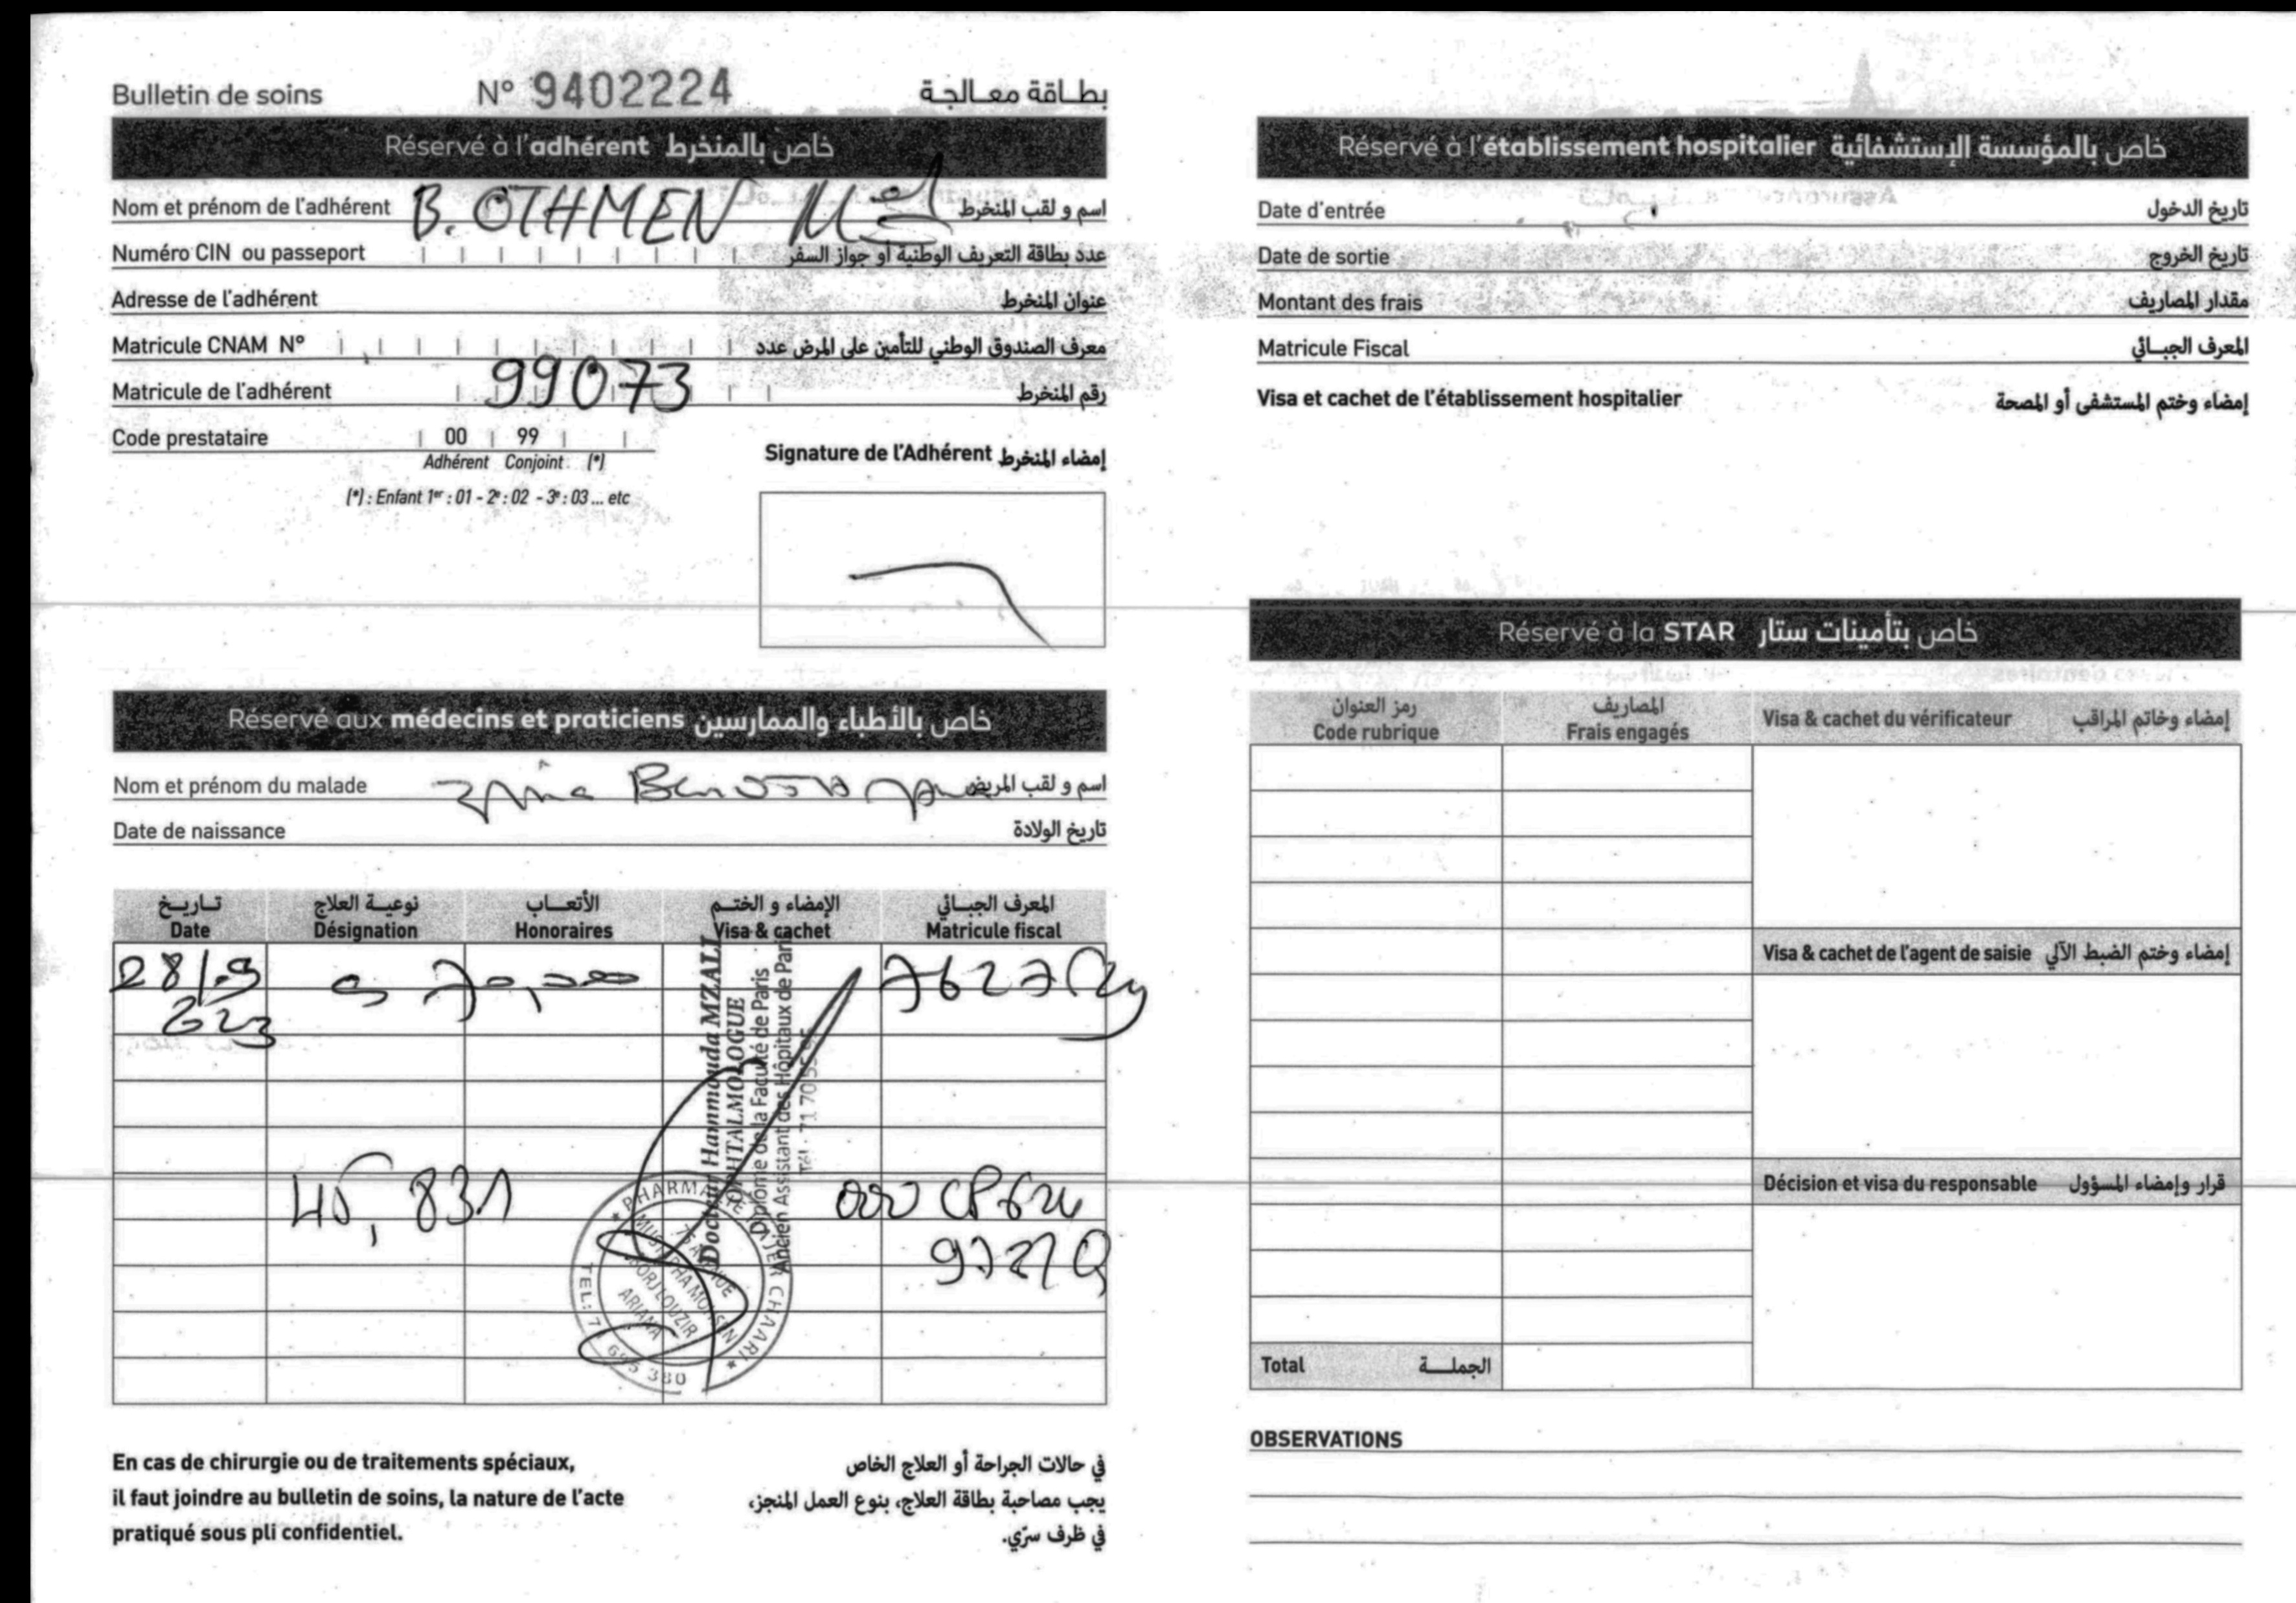 Bulletin de soins N° 9402224 بطاقة معالجة
Réservé à l'adhérent خاص بالمنخرط
Nom et prénom de l'adhérent B. OTHMEN اسم و لقب المنخرط
Numéro CIN ou passeport عدد بطاقة التعريف الوطنية أو جواز السفر
Adresse de l'adhérent عنوان المنخرط
Matricule CNAM N° معرف الصندوق الوطني للتأمين على المرض عدد
Matricule de l'adhérent 99073 رقم المنخرط
Code prestataire 00 99
Adhérent Conjoint (*)
(*) : Enfant 1er : 01 - 2e : 02 - 3e : 03 ... etc
Signature de l'Adhérent إمضاء المنخرط
Réservé aux médecins et praticiens خاص بالأطباء والممارسين
Nom et prénom du malade اسم و لقب المريض
Date de naissance تاريخ الولادة
تاريخ نوعية العلاج الأتعاب الإمضاء و الختم المعرف الجبائي
Date Désignation Honoraires Visa & cachet Matricule fiscal
28/.9
Docteur Hammouda MZALI
OPHTALMOLOGUE
Diplômé de la Faculté de Paris
Ancien Assistant des Hôpitaux de Paris
45,831
PHARMACIE HAJER CHAARI
75 AVENUE
MUSTAPHA MOHSEN
BORJ LOUZIR
ARIANA
En cas de chirurgie ou de traitements spéciaux,
il faut joindre au bulletin de soins, la nature de l'acte
pratiqué sous pli confidentiel.
في حالات الجراحة أو العلاج الخاص
يجب مصاحبة بطاقة العلاج، بنوع العمل المنجز،
في ظرف سرّي.
Réservé à l'établissement hospitalier خاص بالمؤسسة الإستشفائية
Date d'entrée تاريخ الدخول
Date de sortie تاريخ الخروج
Montant des frais مقدار المصاريف
Matricule Fiscal المعرف الجبائي
Visa et cachet de l'établissement hospitalier إمضاء وختم المستشفى أو المصحة
Réservé à la STAR خاص بتأمينات ستار
رمز العنوان المصاريف
Code rubrique Frais engagés Visa & cachet du vérificateur إمضاء وخاتم المراقب
Visa & cachet de l'agent de saisie إمضاء وختم الضبط الآلي
Décision et visa du responsable قرار وإمضاء المسؤول
Total الجملة
OBSERVATIONS